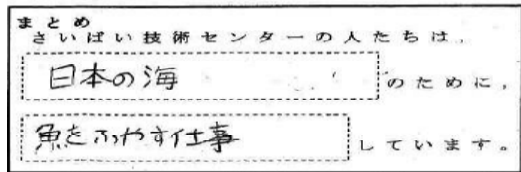 まとめ
さいばい技術センターの人たちは,
日本の海のために,
魚をふやす仕事しています。